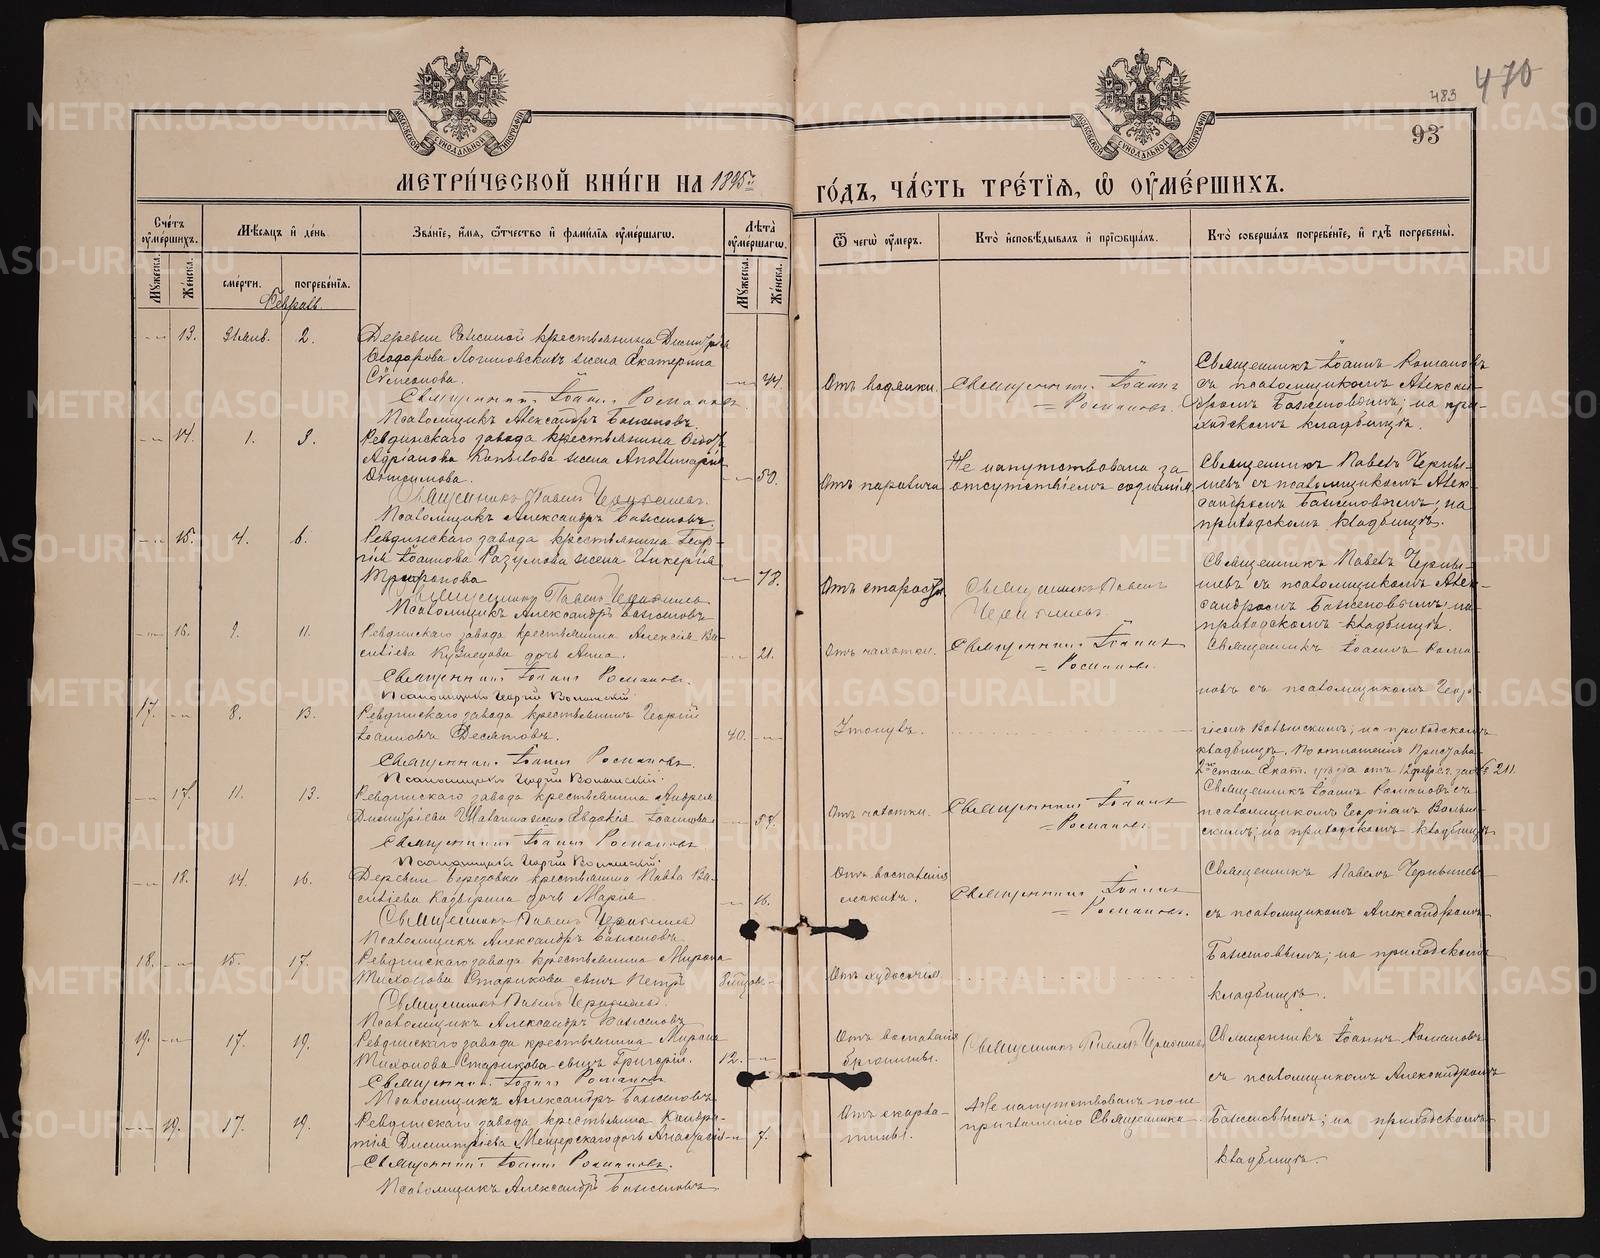 470
483
93
МЕТРИ́ЧЕСКОЙ КНИ́ГИ НА 1895й
ГО́ДЪ, ЧА́СТЬ ТРЕ́ТЇѦ, Ѡ҆ ОУ҆МЕ́РШИХЪ.
Сче́тъ оу҆ме́ршихъ.
Мꙋжеска.
Же́нска.
Мѣ́сяцъ и҆ де́нь
сме́рти.
погребе́нїѧ.
Зва́нїе, и҆́мѧ, ѻ҆́тчество и҆ фами́лїѧ оу҆ме́ршагѡ.
Лѣ́та оу҆ме́ршагѡ.
Мꙋжеска.
Же́нска.
Ѿ чегѡ̀ оу҆́меръ.
Кто̀ и҆сповѣ́дывалъ и҆ прїѡбща́лъ.
Кто̀ соверша́лъ погребе́нїе, и҆ гдѣ̀ погребены̀.
Февраль
13. 31 янв. 2.
крестьянина Димитрія
Ѳеодорова Логиновскихъ жена Екатерина
Симеонова. 44
Священникъ Іоаннъ Романовъ
Псаломщикъ Александръ Баженовъ.
Отъ водянки.
Священникъ Іоаннъ
Романовъ.
Священникъ Іоаннъ Романовъ
съ псаломщикомъ Алексан-
дромъ Баженовымъ; на при-
ходскомъ кладбищѣ.
14. 1. 3.
Ревдинскаго завода крестьянина
Адріанова Копылова жена Аполлинарія
50.
Священникъ Павелъ Чернышевъ.
Псаломщикъ Александръ Баженовъ.
Отъ паралича
Не напутствована за
отсутствіемъ сознанія.
Священникъ Павелъ Черны-
шевъ съ псаломщикомъ Алек-
сандромъ Баженовымъ; на
приходскомъ кладбищѣ.
15. 4. 6.
Ревдинскаго завода крестьянина Геор-
гія Іоаннова Разумова жена Гликерія
Трифонова 78.
Священникъ Павелъ Чернышевъ
Псаломщикъ Александръ Баженовъ
Отъ старости.
Священникъ Павелъ
Чернышевъ.
Священникъ Павелъ Черны-
шевъ съ псаломщикомъ Алек-
сандромъ Баженовымъ; на
приходскомъ кладбищѣ.
16. 9. 11.
Ревдинскаго завода крестьянина Алексія Ва-
силіева Кузнецова дочь Анна. 21.
Священникъ Іоаннъ Романовъ.
Псаломщикъ Георгій Волынскій
Отъ чахотки.
Священникъ Іоаннъ
Романовъ.
Священникъ Іоаннъ Рома-
новъ съ псаломщикомъ Геор-
гіемъ Волынскимъ; на приходскомъ
кладбищѣ. По отношенію Пристава
2го стана Екат. уѣзда отъ 12 февр. с.г. за № 211.
17. 8. 13.
Ревдинскаго завода крестьянинъ Георгій
Іоанновъ Десятовъ. 40.
Священникъ Іоаннъ Романовъ.
Псаломщикъ Георгій Волынскій.
Утонувъ.
17. 11. 13.
Ревдинскаго завода крестьянина Андрея
Димитріева жена Евдокія Іоаннова
Священникъ Іоаннъ Романовъ
Псаломщикъ Георгій Волынскій.
Отъ чахотки.
Священникъ Іоаннъ
Романовъ
Священникъ Іоаннъ Романовъ съ
псаломщикомъ Георгіемъ Волын-
скимъ; на приходскомъ кладбищѣ
18. 14. 16.
Деревни Березовки крестьянина Павла Ва-
силіева дочь Марія 16.
Священникъ Павелъ Чернышевъ
Псаломщикъ Александръ Баженовъ
Отъ воспаленія
легкихъ.
Священникъ Іоаннъ
Романовъ.
Священникъ Павелъ Чернышевъ
съ псаломщикомъ Александромъ
Баженовымъ; на приходскомъ
кладбищѣ.
18. 15. 17.
Ревдинскаго завода крестьянина Мирона
Тихонова Старикова сынъ Петръ
Священникъ Павелъ Чернышевъ.
Псаломщикъ Александръ Баженовъ
Отъ худосочія
19. 17. 19.
Ревдинскаго завода крестьянина Мирона
Тихонова Старикова сынъ Григорій. 12.
Священникъ Іоаннъ Романовъ
Псаломщикъ Александръ Баженовъ
Отъ воспаленія
брюшины.
Священникъ Павелъ Чернышевъ
Священникъ Іоаннъ Романовъ
съ псаломщикомъ Александромъ
Баженовымъ; на приходскомъ
кладбищѣ.
19. 17. 19.
Ревдинскаго завода крестьянина
Димитріева Мещерскаго дочь Анастасія 7.
Священникъ Іоаннъ Романовъ.
Псаломщикъ Александръ Баженовъ
Отъ скарла-
тины.
Не напутствована по не
приглашенію Священника.
METRIKI.GASO-URAL.RU